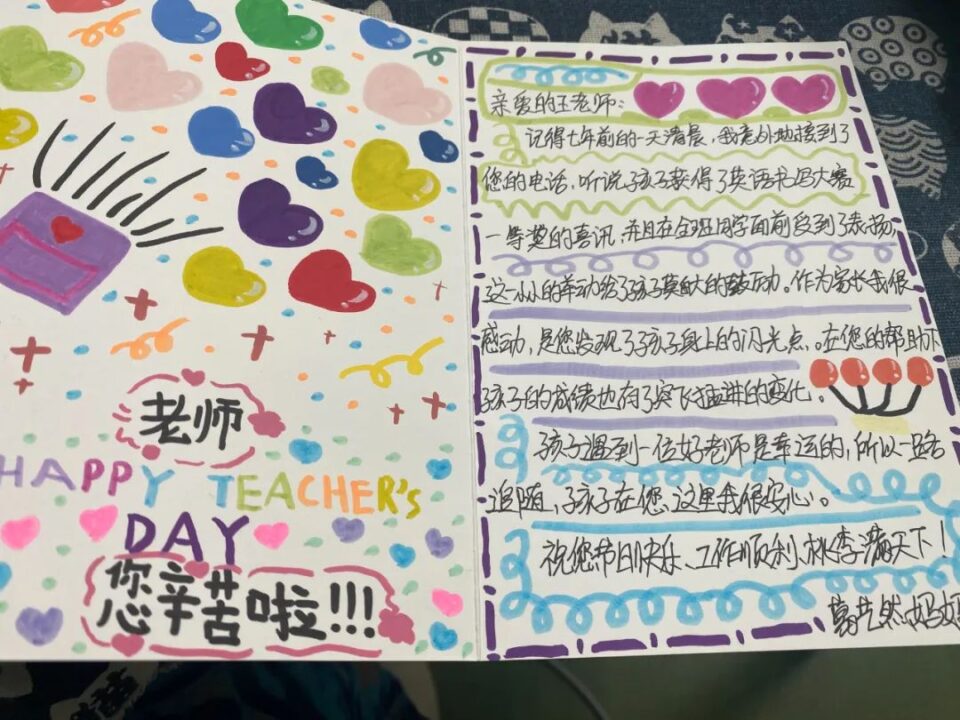 老师
HAPPY TEACHER'S
DAY
您辛苦啦!!!
亲爱的王老师:
记得七年前的一天清晨,我意外地接到了
您的电话,听说孩子获得了英语书写大赛
一等奖的喜讯,并且在全班同学面前受到了表扬,
这一小小的举动给了孩子莫大的鼓励。作为家长我很
感动,是您发现了孩子身上的闪光点。在您的帮助下
孩子的成绩也有了突飞猛进的变化。
孩子遇到一位好老师是幸运的,所以一路
追随,孩子在您这里我很安心。
祝您节日快乐、工作顺利、桃李满天下!
然妈妈